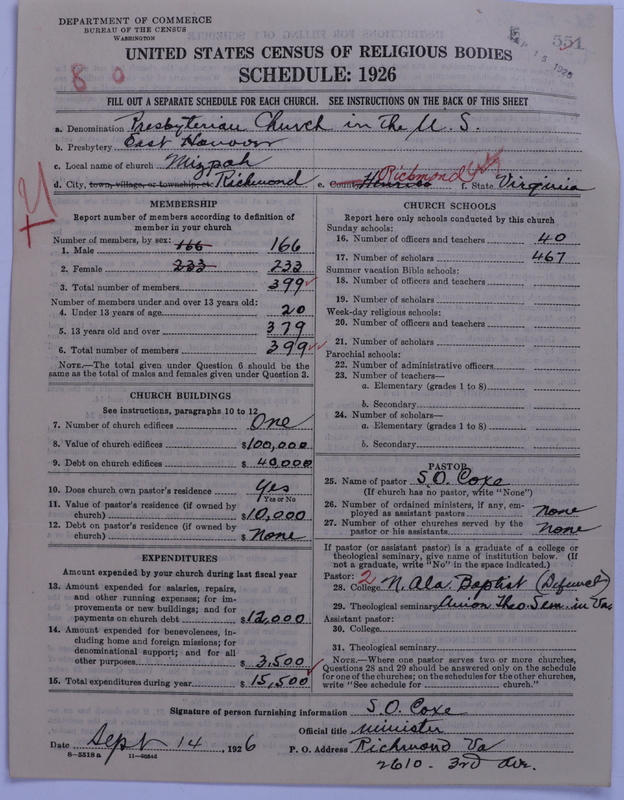 DEPARTMENT OF COMMERCE
BUREAU OF THE CENSUS
WASHINGTON
551
80
UNITED STATES CENSUS OF RELIGIOUS BODIES
SCHEDULE: 1926
FILL OUT A SEPARATE SCHEDULE FOR EACH CHURCH. SEE INSTRUCTIONS ON THE BACK OF THIS SHEET
a. Denomination Presbyterian Church in the U. S.
b. Presbytery East Hanover
c. Local name of church Mizpah
d. City, town, village, or township, etc. Richmond e. County Henrico Richmond City f. State Virginia
MEMBERSHIP
Report number of members according to definition of
member in your church
Number of members, by sex:
1. Male 166 166
2. Female 233 233
3. Total number of members 399
Number of members under and over 13 years old:
4. Under 13 years of age 20
5. 13 years old and over 379
6. Total number of members 399
NOTE.—The total given under Question 6 should be the
same as the total of males and females given under Question 3.
CHURCH BUILDINGS
See instructions, paragraphs 10 to 12
7. Number of church edifices One
8. Value of church edifices $100,000
9. Debt on church edifices $40,000
10. Does church own pastor's residence Yes
Yes or No
11. Value of pastor's residence (if owned by
church) $10,000
12. Debt on pastor's residence (if owned by
church) $None
EXPENDITURES
Amount expended by your church during last fiscal year
13. Amount expended for salaries, repairs,
and other running expenses; for im-
provements or new buildings; and for
payments on church debt $12,000
14. Amount expended for benevolences, in-
cluding home and foreign missions; for
denominational support; and for all
other purposes $3,500
15. Total expenditures during year $15,500
CHURCH SCHOOLS
Report here only schools conducted by this church
Sunday schools:
16. Number of officers and teachers 40
17. Number of scholars 467
Summer vacation Bible schools:
18. Number of officers and teachers
19. Number of scholars
Week-day religious schools:
20. Number of officers and teachers
21. Number of scholars
Parochial schools:
22. Number of administrative officers
23. Number of teachers—
a. Elementary (grades 1 to 8)
b. Secondary
24. Number of scholars—
a. Elementary (grades 1 to 8)
b. Secondary
PASTOR
25. Name of pastor S.O. Coxe
(If church has no pastor, write "None")
26. Number of ordained ministers, if any, em-
ployed as assistant pastors none
27. Number of other churches served by the
pastor or his assistants none
If pastor (or assistant pastor) is a graduate of a college or
theological seminary, give name of institution below. (If
not a graduate, write "No" in the space indicated.)
Pastor: 2
28. College N. Ala. Baptist (Defunct)
29. Theological seminary Union Theo. Sem. in Va.
Assistant pastor:
30. College
31. Theological seminary
NOTE.—Where one pastor serves two or more churches,
Questions 28 and 29 should be answered only on the schedule
for one of the churches; on the schedules for the other churches,
write "See schedule for ______ church."
Signature of person furnishing information S.O. Coxe
Official title minister
Date Sept 14, 1926 P. O. Address Richmond Va
2610- 3rd Ave.
8-5518a